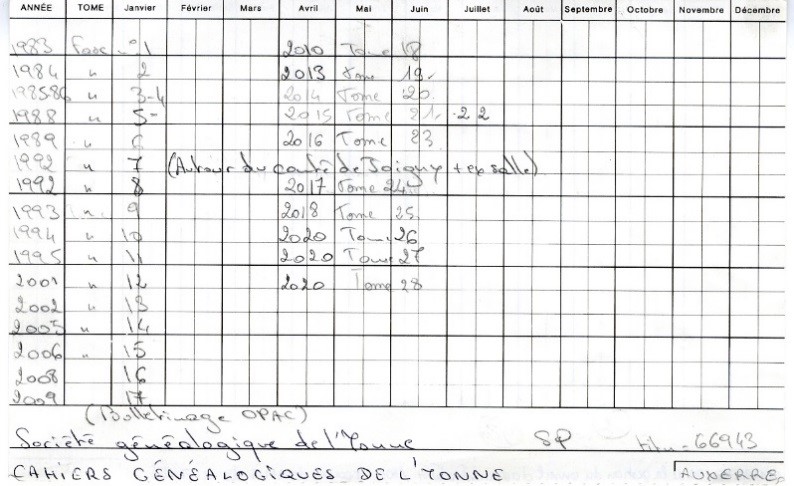 ANNÉE TOME Janvier Février Mars Avril Mai Juin Juillet Août Septembre Octobre Novembre Décembre
1983 Fasc n°1 2010 Tome 18
1984 " 2 2013 Tome 19.
1985-86 " 3-4 2014 Tome 20
1988 " 5- 2015 Tome 21. 22
1989 " 6 2016 Tome 23
1992 " 7 (Autour du comté de Joigny + ex salle)
1992 " 8 2017 Tome 24
1993 " 9 2018 Tome 25
1994 " 10 2020 Tome 26
1995 " 11 2020 Tome 27
2001 " 12 2020 Tome 28
2002 " 13
2005 " 14
2006 " 15
2008 16
2009 17
(Bulletinage OPAC)
Société généalogique de l'Yonne SP 66943
CAHIERS GÉNÉALOGIQUES DE L'YONNE AUXERRE